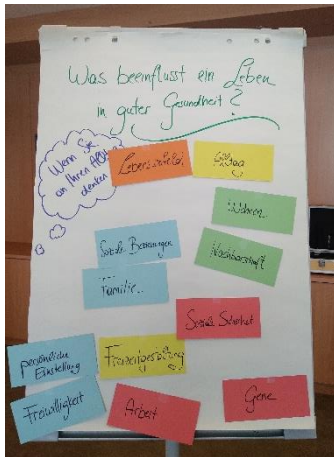 Was beeinflusst ein Leben
in guter Gesundheit?
Wenn Sie
an Ihren
denken
Lebensumfeld
Wohnen
Nachbarschaft
Soziale Beziehungen
Familie
Soziale Sicherheit
persönliche
Einstellung
Freizeitgestaltung
Freiwilligkeit
Arbeit
Gene